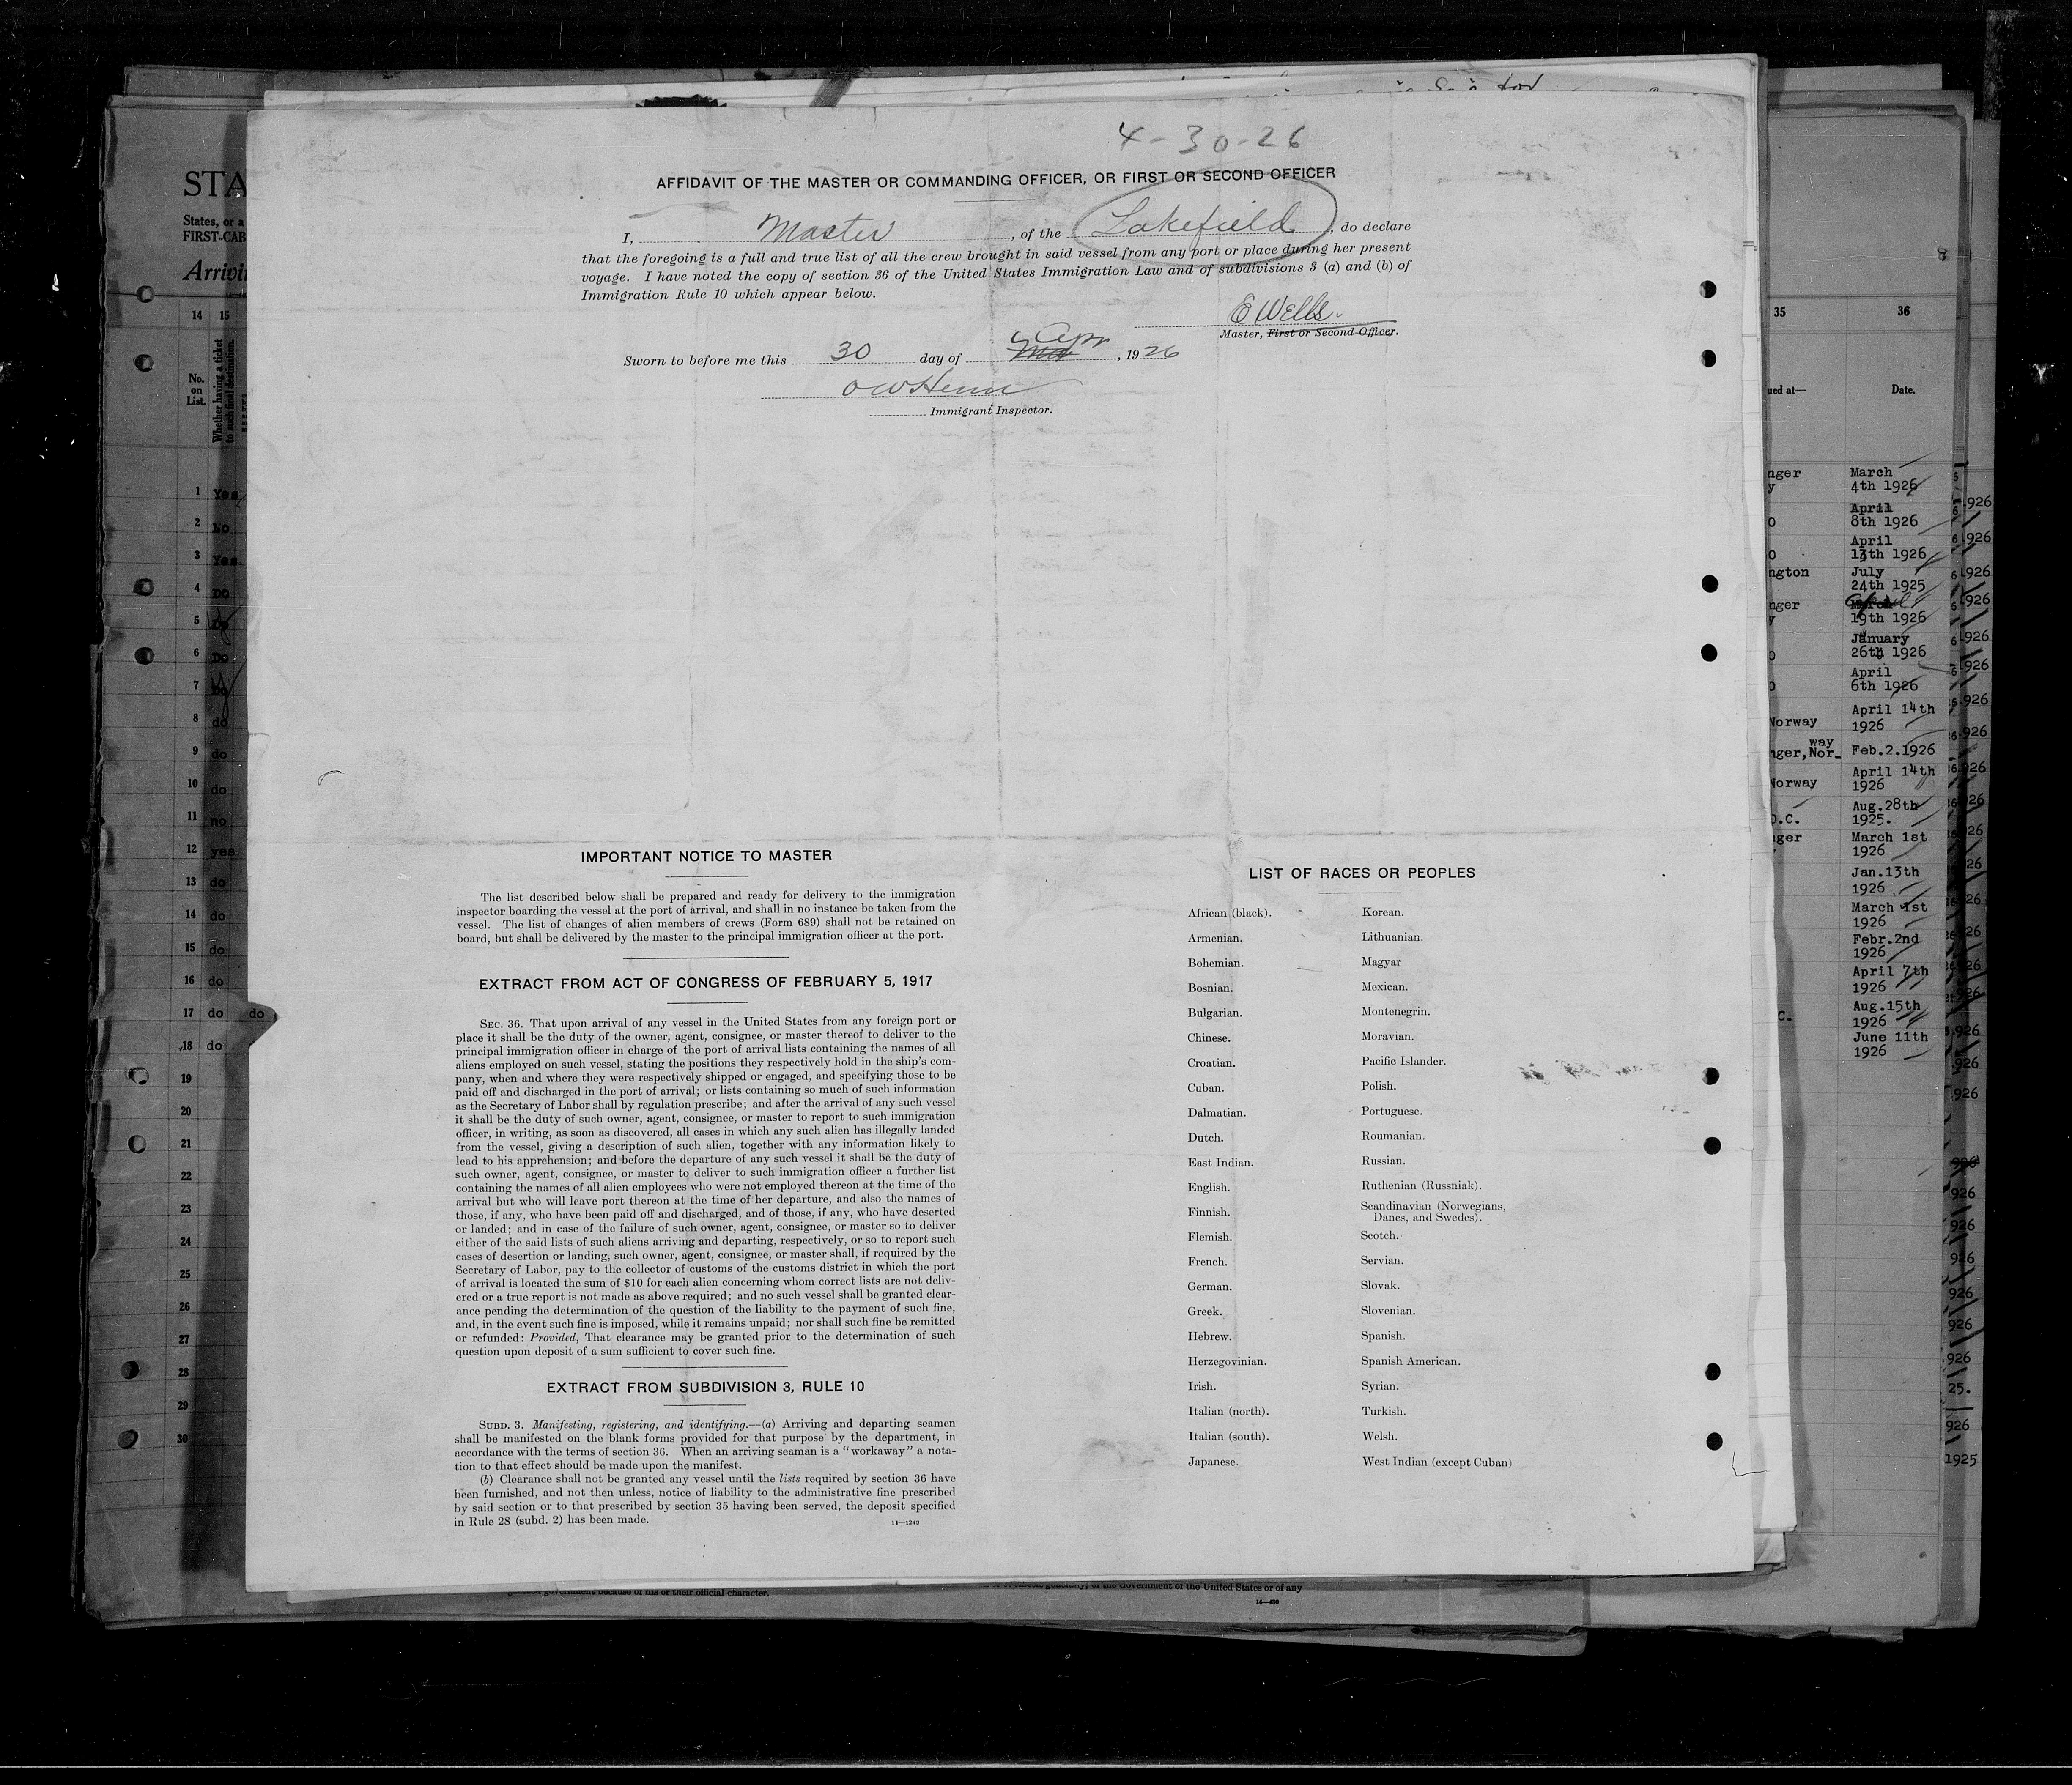 4-30-26
AFFIDAVIT OF THE MASTER OR COMMANDING OFFICER, OR FIRST OR SECOND OFFICER
I, Master, of the Lakefield, do declare
that the foregoing is a full and true list of all the crew brought in said vessel from any port or place during her present
voyage. I have noted the copy of section 36 of the United States Immigration Law and of subdivisions 3 (a) and (b) of
Immigration Rule 10 which appear below.
E Wells.
Master, First or Second Officer.
Sworn to before me this 30 day of Apr, 1926
Immigrant Inspector.
IMPORTANT NOTICE TO MASTER
The list described below shall be prepared and ready for delivery to the immigration
inspector boarding the vessel at the port of arrival, and shall in no instance be taken from the
vessel. The list of changes of alien members of crews (Form 689) shall not be retained on
board, but shall be delivered by the master to the principal immigration officer at the port.
EXTRACT FROM ACT OF CONGRESS OF FEBRUARY 5, 1917
SEC. 36. That upon arrival of any vessel in the United States from any foreign port or
place it shall be the duty of the owner, agent, consignee, or master thereof to deliver to the
principal immigration officer in charge of the port of arrival lists containing the names of all
aliens employed on such vessel, stating the positions they respectively hold in the ship's com-
pany, when and where they were respectively shipped or engaged, and specifying those to be
paid off and discharged in the port of arrival; or lists containing so much of such information
as the Secretary of Labor shall by regulation prescribe; and after the arrival of any such vessel
it shall be the duty of such owner, agent, consignee, or master to report to such immigration
officer, in writing, as soon as discovered, all cases in which any such alien has illegally landed
from the vessel, giving a description of such alien, together with any information likely to
lead to his apprehension; and before the departure of any such vessel it shall be the duty of
such owner, agent, consignee, or master to deliver to such immigration officer a further list
containing the names of all alien employees who were not employed thereon at the time of the
arrival but who will leave port thereon at the time of her departure, and also the names of
those, if any, who have been paid off and discharged, and of those, if any, who have deserted
or landed; and in case of the failure of such owner, agent, consignee, or master so to deliver
either of the said lists of such aliens arriving and departing, respectively, or so to report such
cases of desertion or landing, such owner, agent, consignee, or master shall, if required by the
Secretary of Labor, pay to the collector of customs of the customs district in which the port
of arrival is located the sum of $10 for each alien concerning whom correct lists are not deliv-
ered or a true report is not made as above required; and no such vessel shall be granted clear-
ance pending the determination of the question of the liability to the payment of such fine,
and, in the event such fine is imposed, while it remains unpaid; nor shall such fine be remitted
or refunded: Provided, That clearance may be granted prior to the determination of such
question upon deposit of a sum sufficient to cover such fine.
EXTRACT FROM SUBDIVISION 3, RULE 10
SUBD. 3. Manifesting, registering, and identifying.—(a) Arriving and departing seamen
shall be manifested on the blank forms provided for that purpose by the department, in
accordance with the terms of section 36. When an arriving seaman is a "workaway" a nota-
tion to that effect should be made upon the manifest.
(b) Clearance shall not be granted any vessel until the lists required by section 36 have
been furnished, and not then unless, notice of liability to the administrative fine prescribed
by said section or to that prescribed by section 35 having been served, the deposit specified
in Rule 28 (subd. 2) has been made.
14—1249
LIST OF RACES OR PEOPLES
African (black).
Armenian.
Bohemian.
Bosnian.
Bulgarian.
Chinese.
Croatian.
Cuban.
Dalmatian.
Dutch.
East Indian.
English.
Finnish.
Flemish.
French.
German.
Greek.
Hebrew.
Herzegovinian.
Irish.
Italian (north).
Italian (south).
Japanese.
Korean.
Lithuanian.
Magyar
Mexican.
Montenegrin.
Moravian.
Pacific Islander.
Polish.
Portuguese.
Roumanian.
Russian.
Ruthenian (Russniak).
Scandinavian (Norwegians,
Danes, and Swedes).
Scotch.
Servian.
Slovak.
Slovenian.
Spanish.
Spanish American.
Syrian.
Turkish.
Welsh.
West Indian (except Cuban)
STA
States, or a
FIRST-CAB
Arrivi
14 15
No.
on
List.
Whether having a ticket
to such final destination.
1 Yes
2 No
3 Yes
4 Do
5 Do
6 Do
7 Do
8 do
9 do
10 do
11 no
12 yes
13 do
14 do
15 do
16 do
17 do do
18 do
19
20
21
22
23
24
25
26
27
28
29
30
35 36
ued at— Date.
nger March
y 4th 1926
April
o 8th 1926
April
o 13th 1926
ngton July
24th 1925
nger April
y 19th 1926
January
o 26th 1926
April
o 6th 1926
April 14th
Norway 1926
way
nger, Nor- Feb.2.1926
April 14th
Norway 1926
Aug.28th
D.C. 1925.
nger March 1st
1926
Jan.13th
1926
March 1st
1926
Febr.2nd
1926
April 7th
1926
Aug.15th
C. 1926
June 11th
1926
government because of his or their official character.
of the Government of the United States or of any
14—430